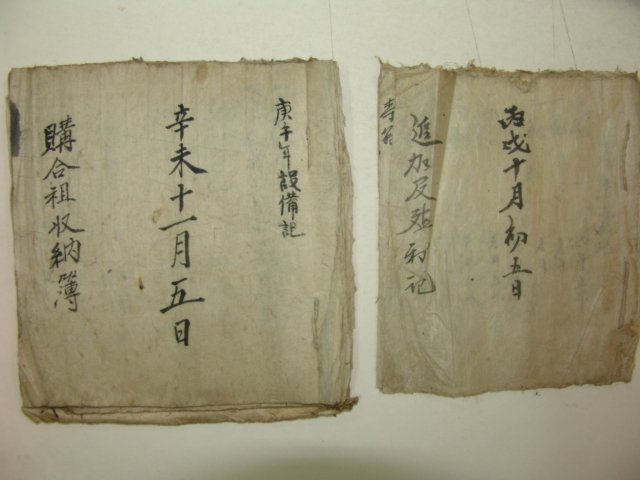 庚午年設備記
辛未十一月五日
購合祖収納簿
丙戌十月初五日
追加反殖利記